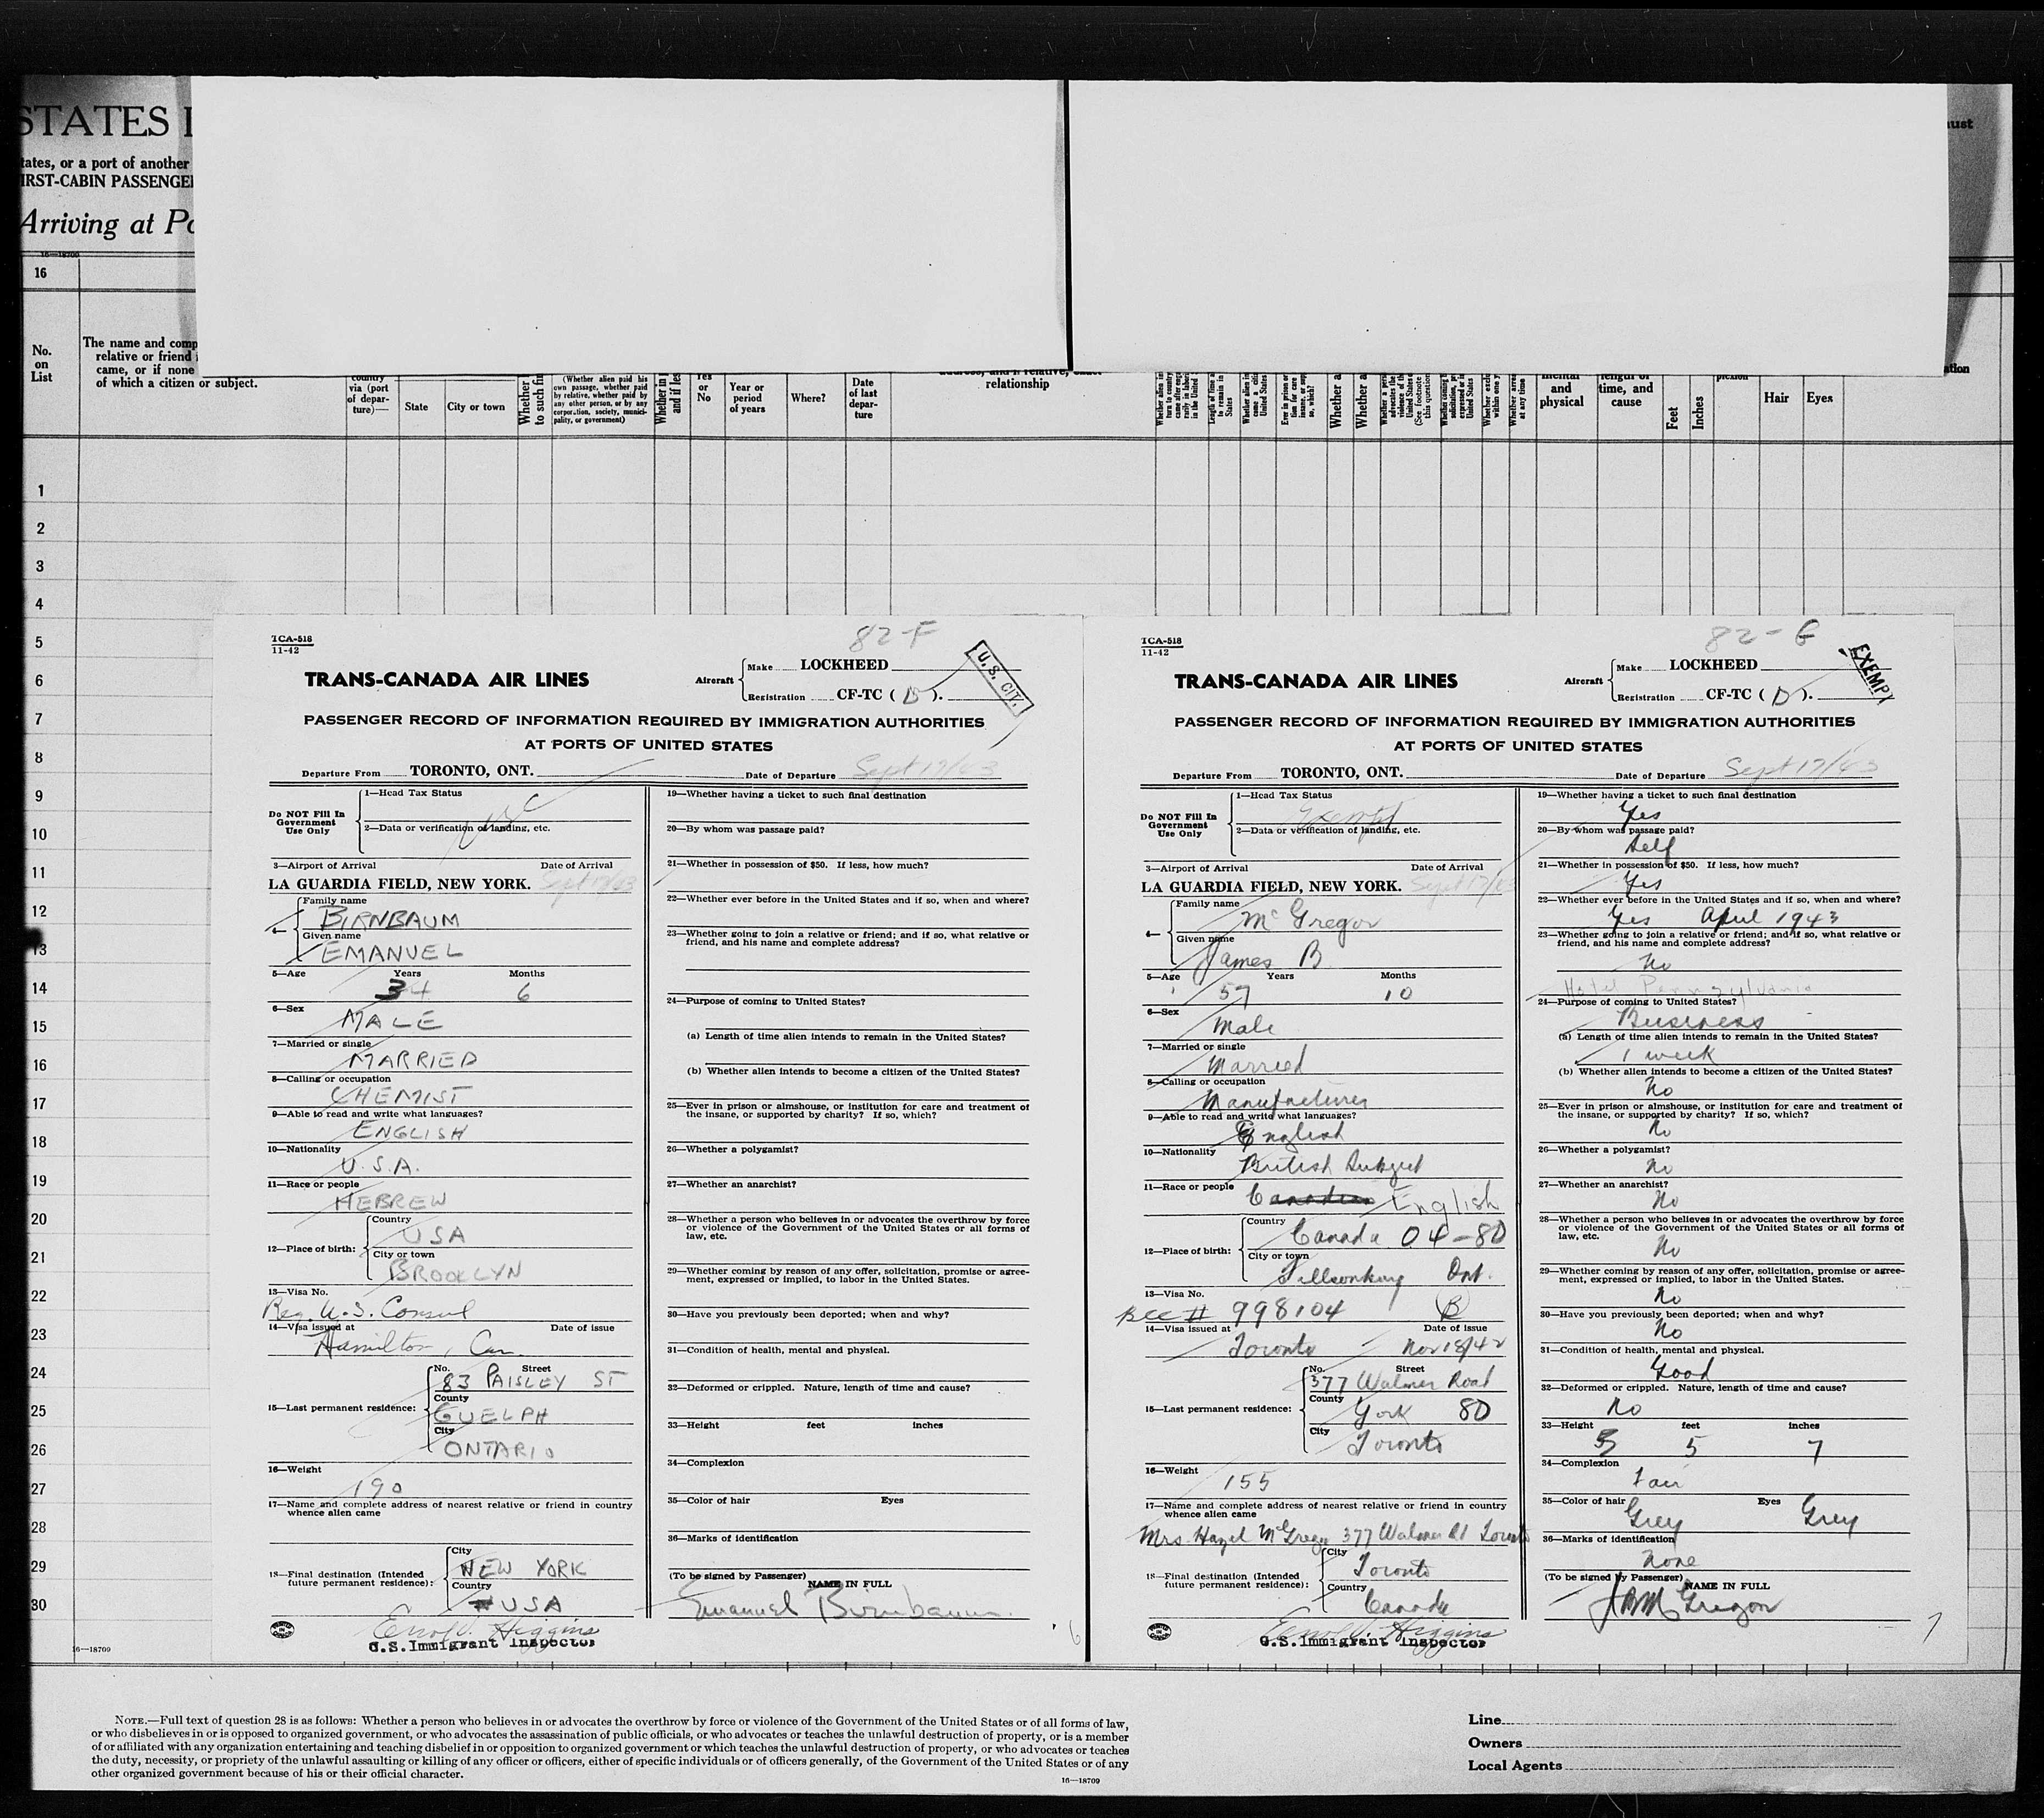 STATES
tates, or a port of another
IRST-CABIN PASSENGE
Arriving at Po
16—18709
16
No. on List
The name and comp
relative or friend
came, or if none
of which a citizen or subject.
country
via (port
of depar-
ture)—
State
City or town
Whether
to such fin
(Whether alien paid his
own passage, whether paid
by relative, whether paid by
any other person, or by any
corporation, society, munici-
pality, or government)
Whether in
and if les
Yes
or
No
Year or
period
of years
Where?
Date
of last
depar-
ture
address, and if relative, exact
relationship
mental
and
physical
length of
time, and
cause
Feet
Inches
plexion
Hair
Eyes
must
ation
1
2
3
4
5
6
7
8
9
10
11
12
13
14
15
16
17
18
19
20
21
22
23
24
25
26
27
28
29
30
16—18709
82-F
TCA-518
11-42
TRANS-CANADA AIR LINES
Aircraft
Make LOCKHEED
Registration CF-TC ( D ).
U. S. CIT.
PASSENGER RECORD OF INFORMATION REQUIRED BY IMMIGRATION AUTHORITIES
AT PORTS OF UNITED STATES
Departure From TORONTO, ONT. Date of Departure Sept 17/43
Do NOT Fill In
Government
Use Only
1—Head Tax Status
USC
2—Data or verification of landing, etc.
3—Airport of Arrival Date of Arrival
LA GUARDIA FIELD, NEW YORK. Sept 17/43
4—
Family name
BIRNBAUM
Given name
EMANUEL
5—Age Years Months
34 6
6—Sex
MALE
7—Married or single
MARRIED
8—Calling or occupation
CHEMIST
9—Able to read and write what languages?
ENGLISH
10—Nationality
U.S.A.
11—Race or people
HEBREW
12—Place of birth:
Country
USA
City or town
BROOKLYN
13—Visa No.
Reg. U.S. Consul
14—Visa issued at Date of issue
Hamilton, Can.
15—Last permanent residence:
No. Street
83 PAISLEY ST
County
GUELPH
City
ONTARIO
16—Weight
190
17—Name and complete address of nearest relative or friend in country
whence alien came
18—Final destination (Intended
future permanent residence):
City
NEW YORK
Country
USA
Errol V. Higgins
U.S. Immigrant Inspector
19—Whether having a ticket to such final destination
20—By whom was passage paid?
21—Whether in possession of $50. If less, how much?
22—Whether ever before in the United States and if so, when and where?
23—Whether going to join a relative or friend; and if so, what relative or
friend, and his name and complete address?
24—Purpose of coming to United States?
(a) Length of time alien intends to remain in the United States?
(b) Whether alien intends to become a citizen of the United States?
25—Ever in prison or almshouse, or institution for care and treatment of
the insane, or supported by charity? If so, which?
26—Whether a polygamist?
27—Whether an anarchist?
28—Whether a person who believes in or advocates the overthrow by force
or violence of the Government of the United States or all forms of
law, etc.
29—Whether coming by reason of any offer, solicitation, promise or agree-
ment, expressed or implied, to labor in the United States.
30—Have you previously been deported; when and why?
31—Condition of health, mental and physical.
32—Deformed or crippled. Nature, length of time and cause?
33—Height feet inches
34—Complexion
35—Color of hair Eyes
36—Marks of identification
(To be signed by Passenger) NAME IN FULL
Emanuel Birnbaum
6
82-G
TCA-518
11-42
TRANS-CANADA AIR LINES
Aircraft
Make LOCKHEED
Registration CF-TC ( D ).
EXEMPT
PASSENGER RECORD OF INFORMATION REQUIRED BY IMMIGRATION AUTHORITIES
AT PORTS OF UNITED STATES
Departure From TORONTO, ONT. Date of Departure Sept 17/43
Do NOT Fill In
Government
Use Only
1—Head Tax Status
Exempt
2—Data or verification of landing, etc.
3—Airport of Arrival Date of Arrival
LA GUARDIA FIELD, NEW YORK. Sept 17/43
4—
Family name
McGregor
Given name
James B
5—Age Years Months
57 10
6—Sex
Male
7—Married or single
Married
8—Calling or occupation
Manufacturer
9—Able to read and write what languages?
English
10—Nationality
British Subject
11—Race or people Canadian English
12—Place of birth:
Country
Canada 04-80
City or town
Tillsonburg Ont.
13—Visa No.
BCC # 998104 B
14—Visa issued at Date of issue
Toronto - Nov 18/42
15—Last permanent residence:
No. Street
377 Walmer Road
County
York 80
City
Toronto
16—Weight
155
17—Name and complete address of nearest relative or friend in country
whence alien came
Mrs. Hazel McGregor 377 Walmer Rd Toronto
18—Final destination (Intended
future permanent residence):
City
Toronto
Country
Canada
Errol V. Higgins
U.S. Immigrant Inspector
19—Whether having a ticket to such final destination
Yes
20—By whom was passage paid?
Self
21—Whether in possession of $50. If less, how much?
Yes
22—Whether ever before in the United States and if so, when and where?
Yes April 1943
23—Whether going to join a relative or friend; and if so, what relative or
friend, and his name and complete address?
No
Hotel Pennsylvania
24—Purpose of coming to United States?
Business
(a) Length of time alien intends to remain in the United States?
1 week
(b) Whether alien intends to become a citizen of the United States?
No
25—Ever in prison or almshouse, or institution for care and treatment of
the insane, or supported by charity? If so, which?
No
26—Whether a polygamist?
No
27—Whether an anarchist?
No
28—Whether a person who believes in or advocates the overthrow by force
or violence of the Government of the United States or all forms of
law, etc.
No
29—Whether coming by reason of any offer, solicitation, promise or agree-
ment, expressed or implied, to labor in the United States.
No
30—Have you previously been deported; when and why?
No
31—Condition of health, mental and physical.
Good
32—Deformed or crippled. Nature, length of time and cause?
No
33—Height feet inches
5 5 7
34—Complexion
Fair
35—Color of hair Eyes
Grey Grey
36—Marks of identification
None
(To be signed by Passenger) NAME IN FULL
J B McGregor
7
NOTE.—Full text of question 28 is as follows: Whether a person who believes in or advocates the overthrow by force or violence of the Government of the United States or of all forms of law,
or who disbelieves in or is opposed to organized government, or who advocates the assassination of public officials, or who advocates or teaches the unlawful destruction of property, or is a member
of or affiliated with any organization entertaining and teaching disbelief in or opposition to organized government or which teaches the unlawful destruction of property, or who advocates or teaches
the duty, necessity, or propriety of the unlawful assaulting or killing of any officer or officers, either of specific individuals or of officers generally, of the Government of the United States or of any
other organized government because of his or their official character.
16—18709
Line
Owners
Local Agents